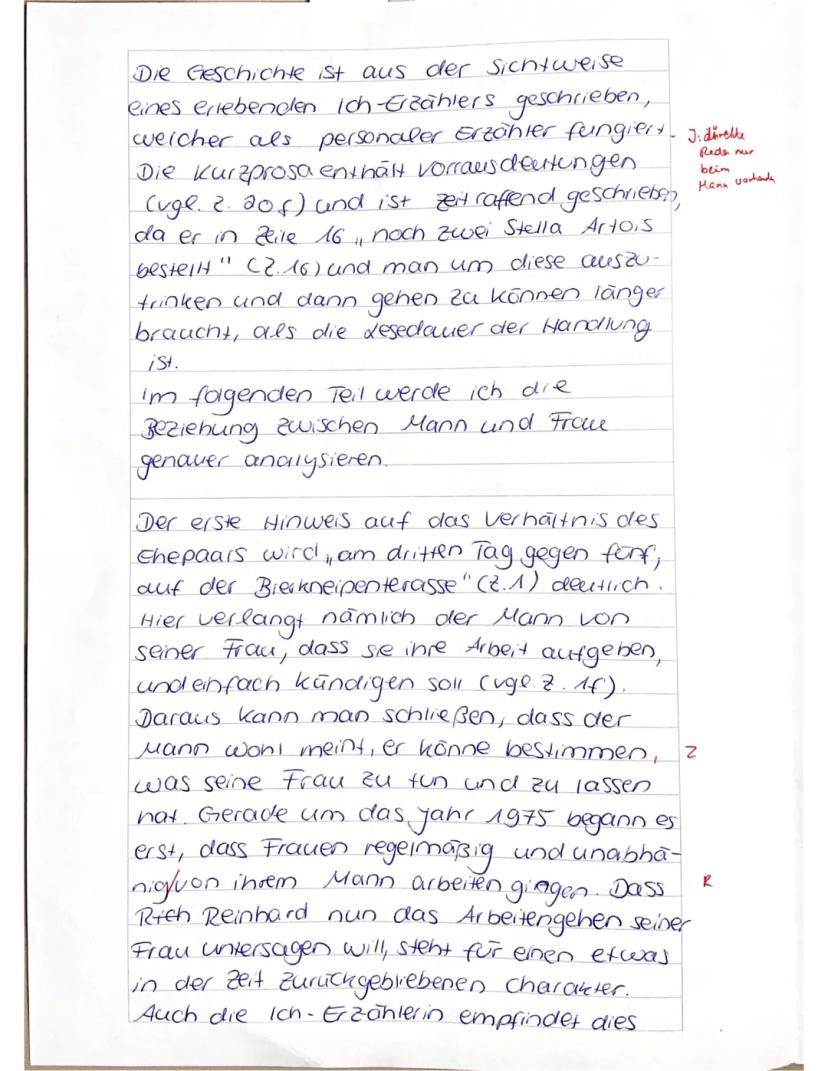 Die Geschichte ist aus der Sichtweise
eines erlebenden Ich-Erzählers geschrieben,
welcher als personaler Erzähler fungiert.
J: direkte
Rede nur
beim
Mann vorhanden
Die Kurzprosa enthält Vorrausdeutungen
(vgl. Z. 20f) und ist zeitraffend geschrieben,
da er in Zeile 16 „noch zwei Stella Artois
bestellt" (Z.16) und man um diese auszu-
trinken und dann gehen zu können länger
braucht, als die Lesedauer der Handlung
ist.
Im folgenden Teil werde ich die
Beziehung zwischen Mann und Frau
genauer analysieren.
Der erste Hinweis auf das Verhältnis des
Ehepaars wird „am dritten Tag gegen fünf,
auf der Bierkneipenterasse" (Z.1) deutlich.
Hier verlangt nämlich der Mann von
seiner Frau, dass sie ihre Arbeit aufgeben,
und einfach kündigen soll (vgl. Z. 1f).
Daraus kann man schließen, dass der
Mann wohl meint, er könne bestimmen, Z
was seine Frau zu tun und zu lassen
hat. Gerade um das Jahr 1975 begann es
erst, dass Frauen regelmäßig und unabhä-
nig/von ihrem Mann arbeiten gingen. Dass R
Reinhard nun das Arbeitengehen seiner
Frau untersagen will, steht für einen etwas
in der Zeit zurückgebliebenen Charakter.
Auch die Ich-Erzählerin empfindet dies